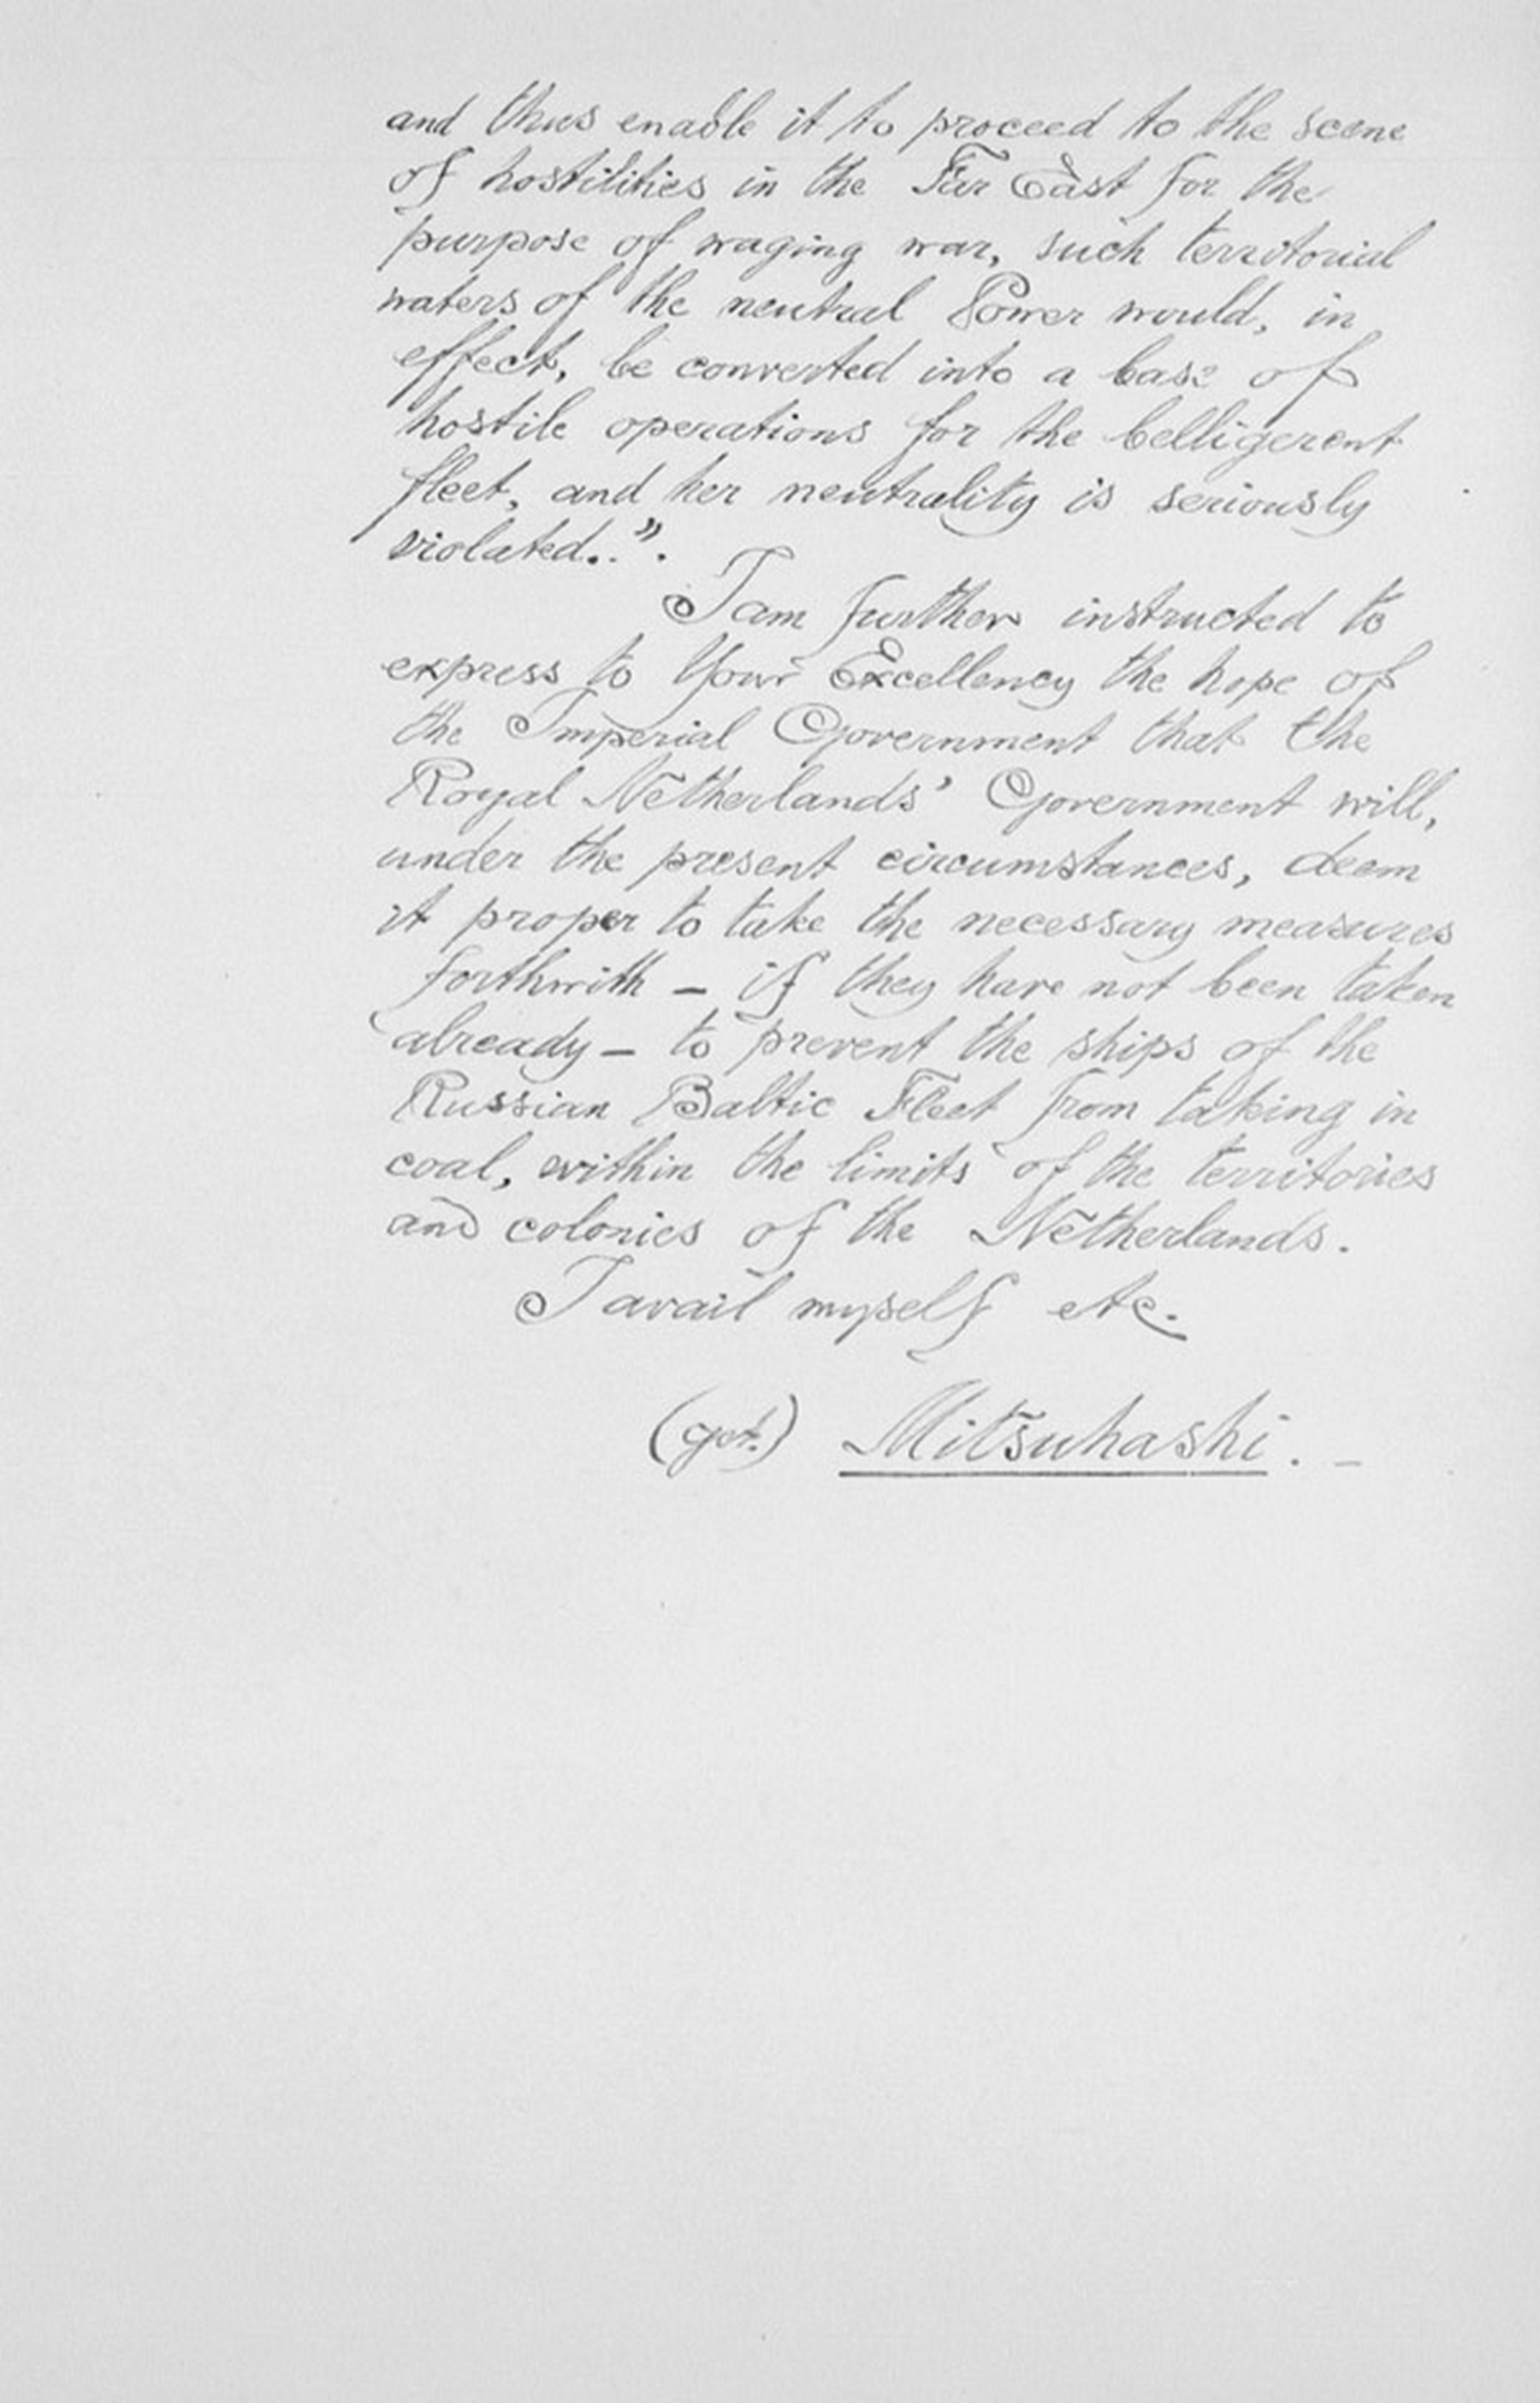 and thus enable it to proceed to the scene
of hostilities in the Far East for the
purpose of waging war, such territorial
waters of the neutral Power would, in
effect, be converted into a base of
hostile operations for the belligerent
fleet, and her neutrality is seriously
violated..”.
I am further instructed to
express to Your Excellency the hope of
the Imperial Government that the
Royal Netherlands’ Government will,
under the present circumstances, deem
it proper to take the necessary measures
forthwith – if they have not been taken
already – to prevent the ships of the
Russian Baltic Fleet from taking in
coal, within the limits of the territories
and colonies of the Netherlands.
I avail myself etc.
(get.) Mitsuhashi. –